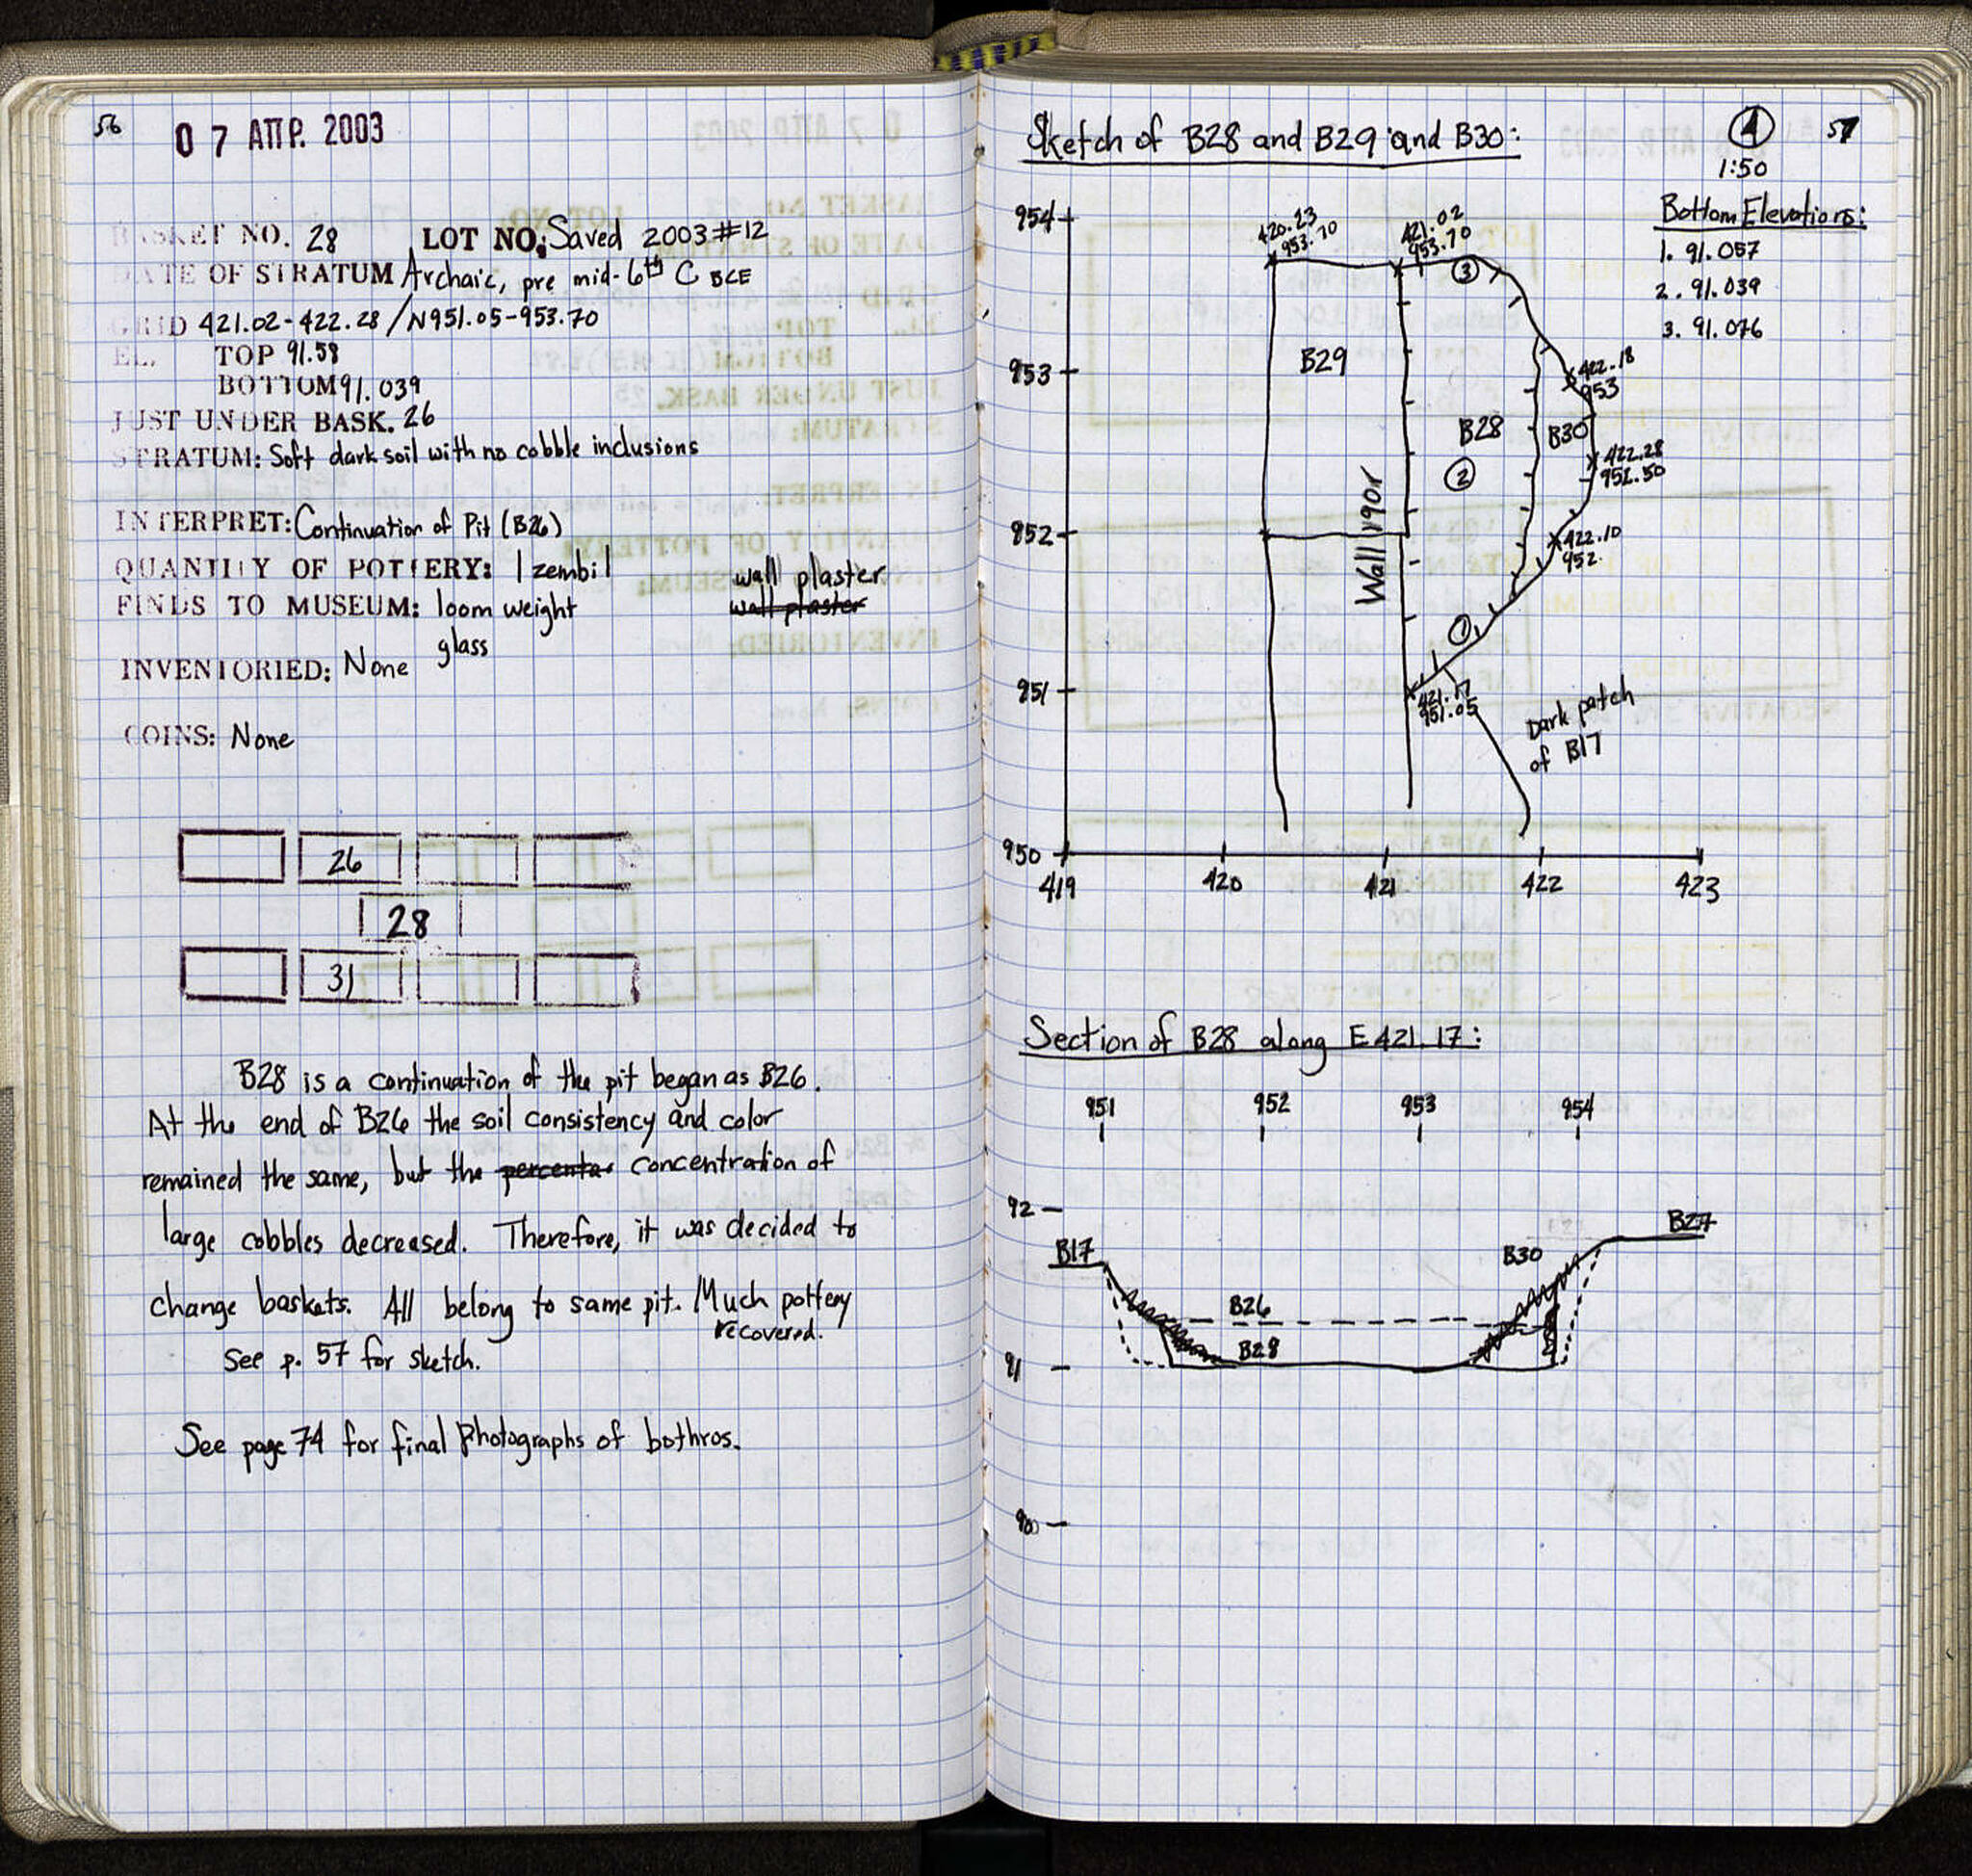 56
07 ΑΠΡ. 2003
BASKET NO. 28 LOT NO. Saved 2003 #12
DATE OF STRATUM Archaic, pre mid-6th C BCE
GRID 421.02-422.28 / N951.05-953.70
EL. TOP 91.58
BOTTOM 91.039
JUST UNDER BASK. 26
STRATUM: Soft dark soil with no cobble inclusions
INTERPRET: Continuation of Pit (B26)
QUANTITY OF POTTERY: 1 zembil
wall plaster
FINDS TO MUSEUM: loom weight
wall plaster
glass
INVENTORIED: None
COINS: None
26
28
31
B28 is a continuation of the pit began as B26.
At the end of B26 the soil consistency and color
remained the same, but the percenta concentration of
large cobbles decreased. Therefore, it was decided to
change baskets. All belong to same pit. Much pottery
recovered.
See p. 57 for sketch.
See page 74 for final photographs of bothros.
Sketch of B28 and B29 and B30:
57
1:50
Bottom Elevations:
1. 91.057
2. 91.039
3. 91.076
954
420.23
953.70
421.02
953.70
3
953
B29
422.18
953
B28
B30
2
422.28
952.50
Wall 190r
952
422.10
952.
1
951
421.17
951.05
Dark patch
of B17
950
419 420 421 422 423
Section of B28 along E421.17:
951 952 953 954
92
B27
B17
B30
B26
B28
91
90